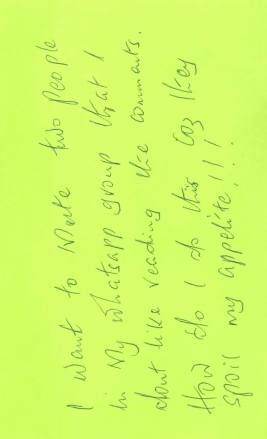 I want to Mute two people
in My whatsapp group that I
dont like reading the comments.
How do I do this coz they
spoil my appetite!!!